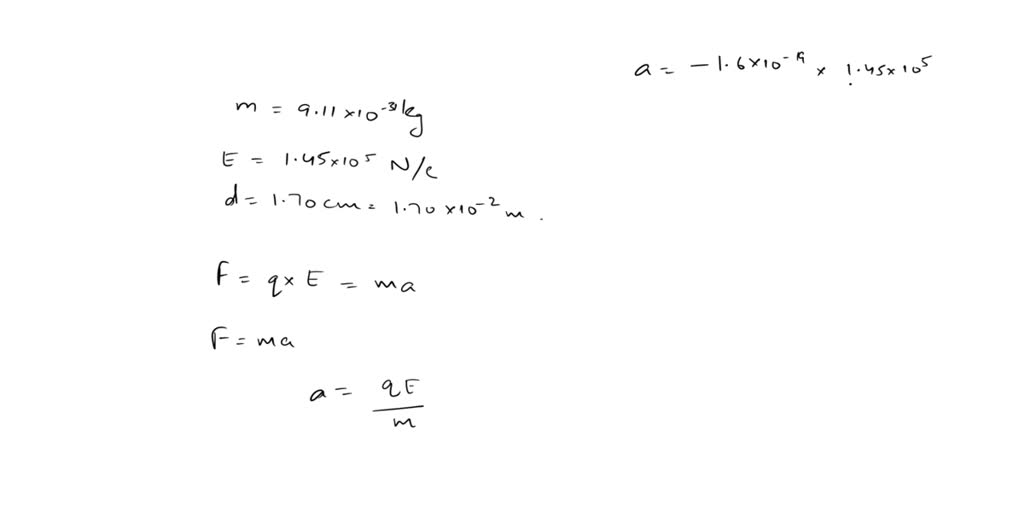 a = - 1.6×10⁻¹⁹ × 1.45×10⁵
m = 9.11×10⁻³¹kg
E = 1.45×10⁵ N/C
d = 1.70 cm = 1.70 ×10⁻² m .
F = q× E = ma
F = ma
a = qE / m